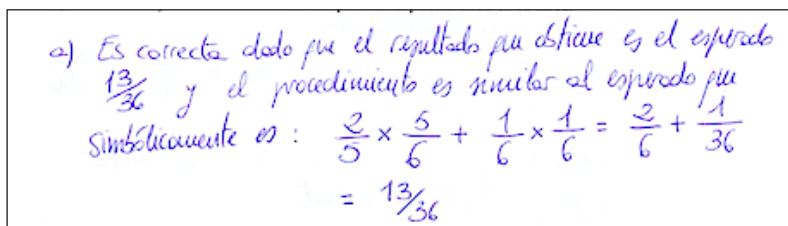 a) Es correcta dado que el resultado que obtiene es el esperado
13/36 y el procedimiento es similar al esperado que
simbólicamente es : 2/5 × 5/6 + 1/6 × 1/6 = 2/6 + 1/36
= 13/36